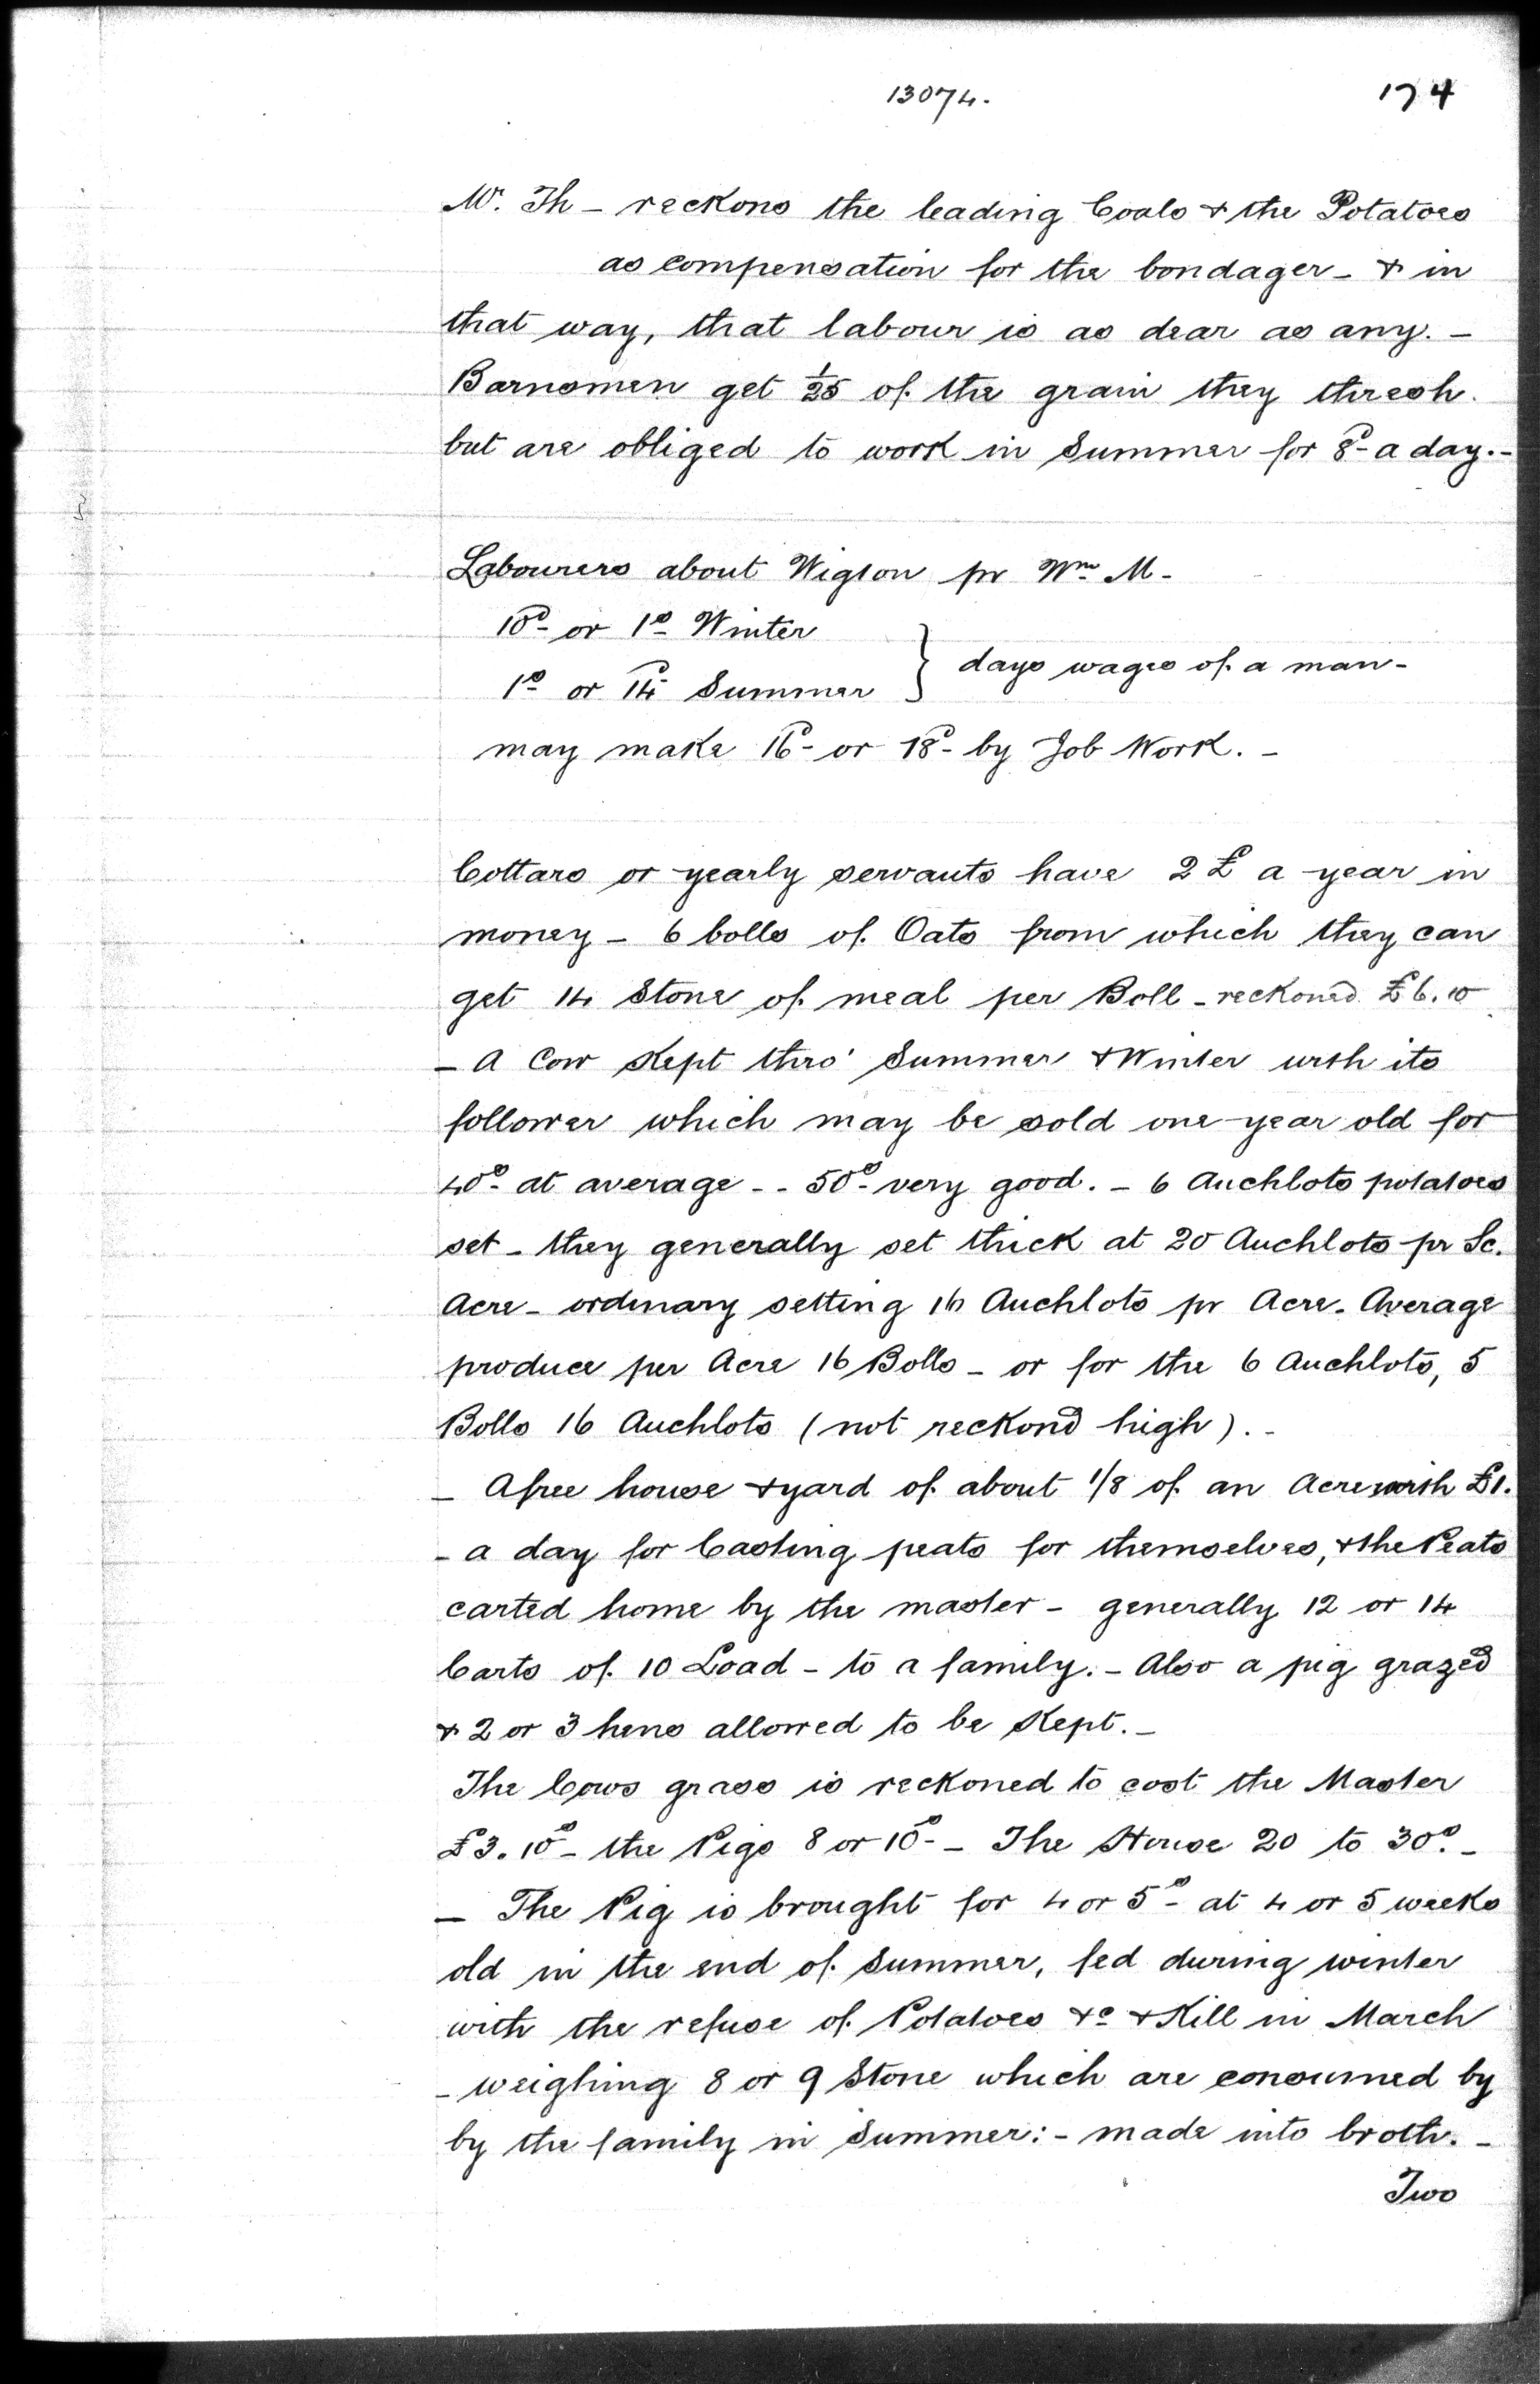 13074.
174
Mr. Th - reckons the leading Coals & the Potatoes
as compensation for the bondager - & in
that way, that labour is as dear as any. -
Barnsmen get 1/25 of the grain they thresh.
but are obliged to work in Summer for 8d a day. -
Labourers about Wigton pr Wm M -
10d or 1s Winter
1s or 14d Summer } days wages of a man -
may make 16d or 18d by Job Work. -
Cottars or yearly servants have 2 £ a year in
money - 6 bolls of Oats from which they can
get 14 Stone of meal per Boll - reckoned £6.10
- A Cow Kept thro' Summer & Winter with its
follower which may be sold one year old for
40s at average - - 50s very good. - 6 Auchlots potatoes
set - they generally set thick at 20 Auchlots pr Sc.
Acre - ordinary setting 16 Auchlots pr Acre. Average
produce per Acre 16 Bolls - or for the 6 Auchlots, 5
Bolls 16 Auchlots (not reckond high). -
- A free house & yard of about 1/8 of an Acre worth £1.
- a day for Casting peats for themselves, & the Peats
carted home by the master - generally 12 or 14
Carts of 10 Load - to a family. - Also a pig grazed
& 2 or 3 hens allowed to be Kept. -
The Cows grass is reckoned to cost the Master
£3.10s - the Pigs 8 or 10s - The House 20 to 30s. -
- The Pig is brought for 4 or 5s at 4 or 5 weeks
old in the end of Summer, fed during winter
with the refuse of Potatoes &c & Kill in March
- weighing 8 or 9 Stone which are consumed by
by the family in Summer: - made into broth. -
Two